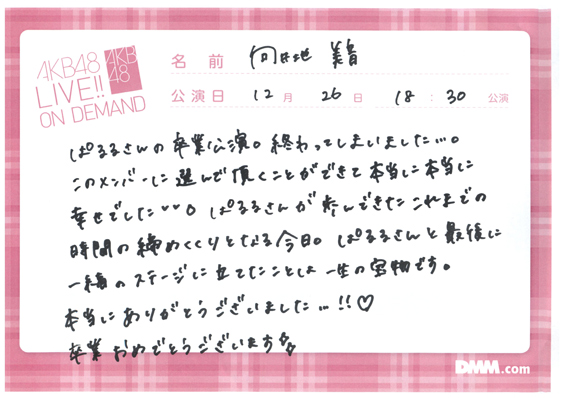 AKB48
LIVE!!
ON DEMAND
AKB
48
名前 向井地 美音
公演日 12月 26日 18:30 公演
ぱるるさんの卒業公演。終わってしまいました…。
このメンバーに選んで頂くことができて本当に本当に
幸せでした¨。ぱるるさんが歩んできたこれまでの
時間の締めくくりとなる今日。ぱるるさんと最後に
一緒のステージに立てたことは一生の宝物です。
本当にありがとうございました…!!♡
卒業おめでとうございます☆
DMM.com